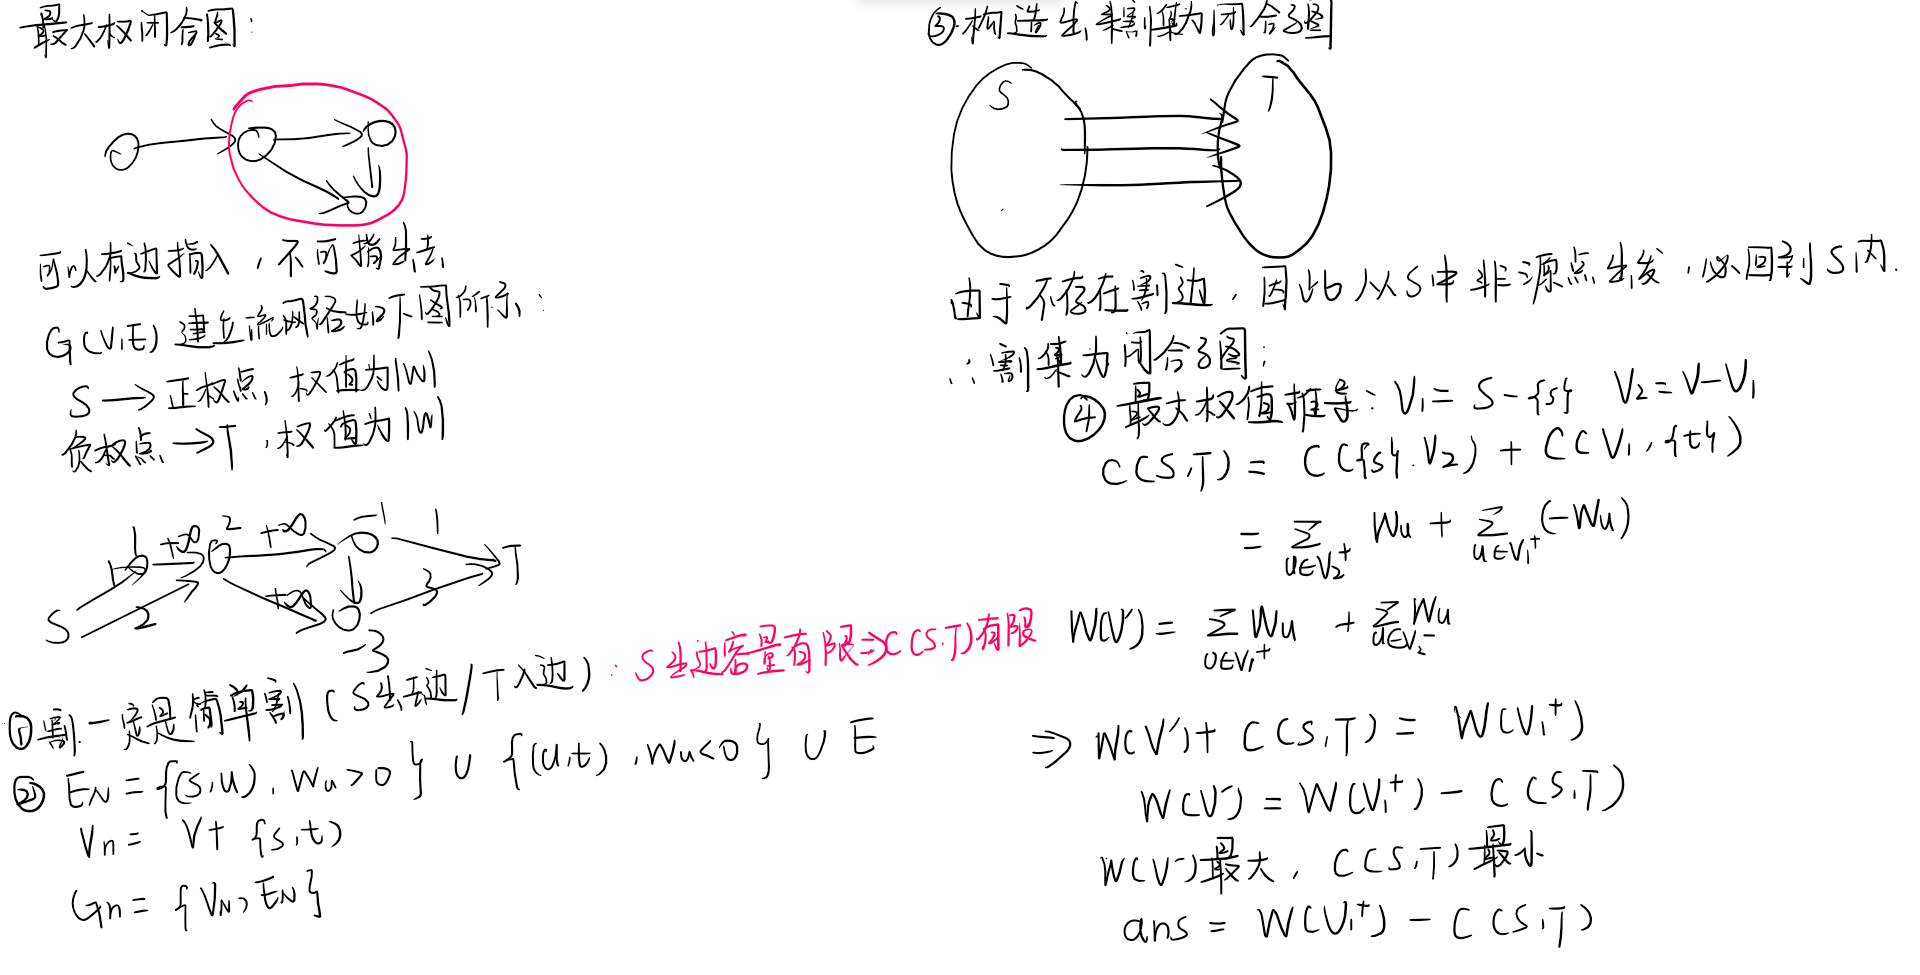 最大权闭合图:
可以有边指入，不可指出去
G(V,E) 建立流网络如下图所示:
S → 正权点, 权值为|W|
负权点 → T , 权值为|W|
1 +∞ 2 +∞ -1 1
1
S 2 +∞ 3 T
-3
①割一定是简单割 (S出去边/T入边): S出边容量有限⇒C(S,T)有限
② EN = {(S,u), Wu>0} ∪ {(u,t), Wu<0} ∪ E
Vn = V+ {s,t}
Gn = {VN, EN}
③构造出来割集为闭合子图
S T
由于不存在割边, 因此从S中非源点出发, 必回到S内.
∴割集为闭合子图;
④最大权值推导: V₁= S-{s} V₂=V-V₁
C(S,T) = C({s},V₂) + C(V₁,{t})
= Σ u∈V₂⁺ Wu + Σ u∈V₁⁺ (-Wu)
W(V') = Σ u∈V₁⁺ Wu + Σ u∈V₂⁻ Wu
⇒ W(V')+ C(S,T) = W(V₁⁺)
W(V') = W(V₁⁺) - C(S,T)
W(V')最大, C(S,T)最小
ans = W(V₁⁺) - C(S,T)